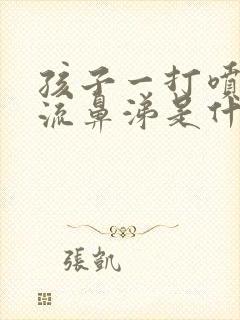 孩子一打噴
流鼻涕是什
張凱